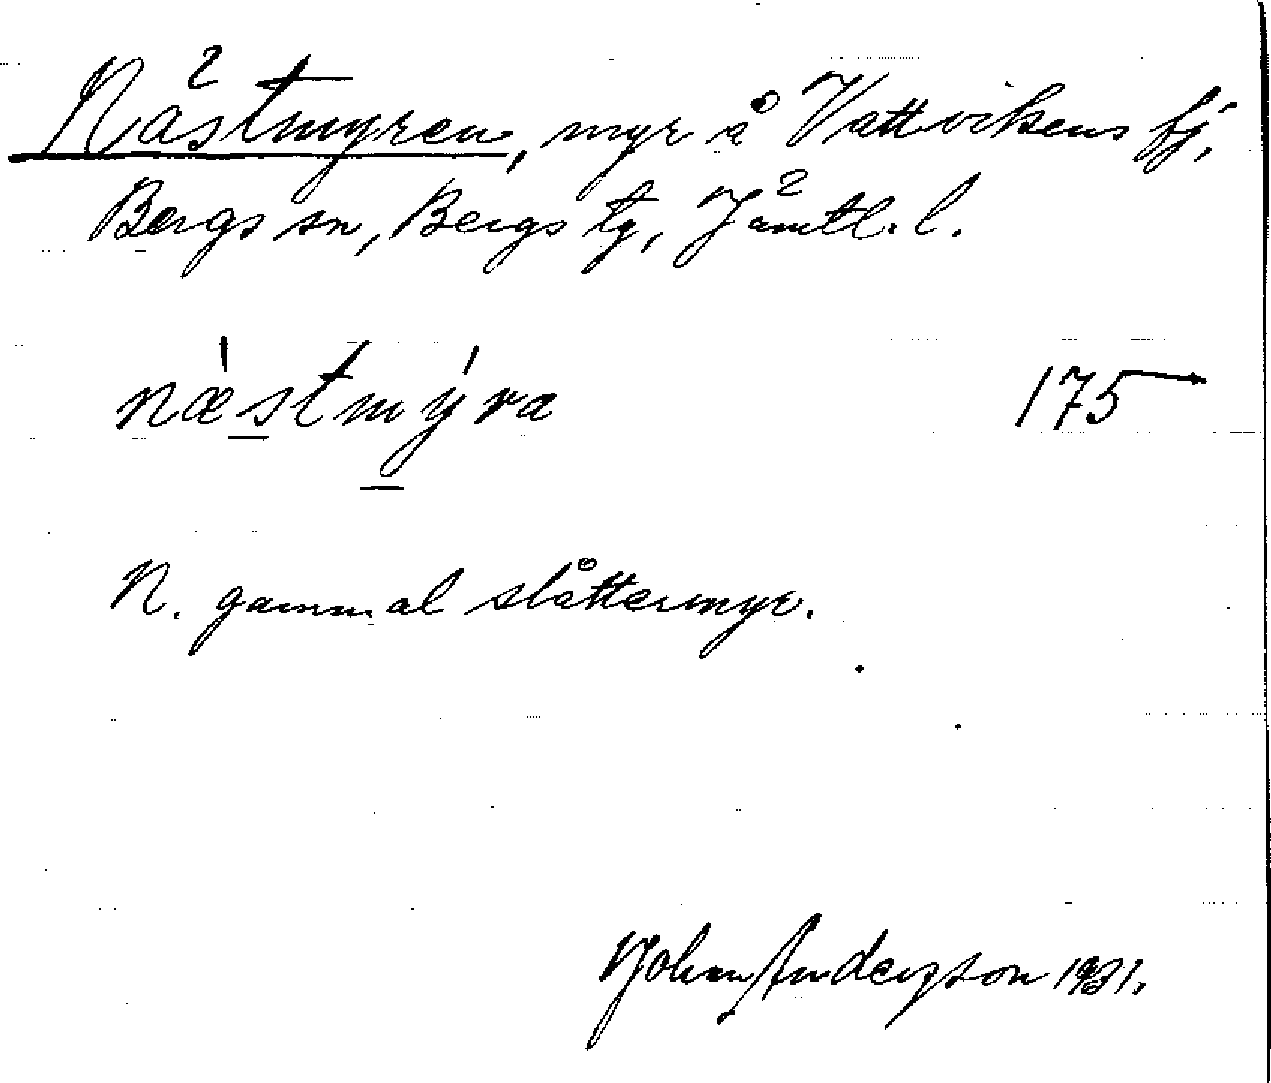 Nästmyren, myr å Vattvikens fj,
Bergs sn, Bergs tg, Jämtl. l.
næ̍stmy̍ra 175
N. gammal slåttermyr.
Johan Anderzson 1931.